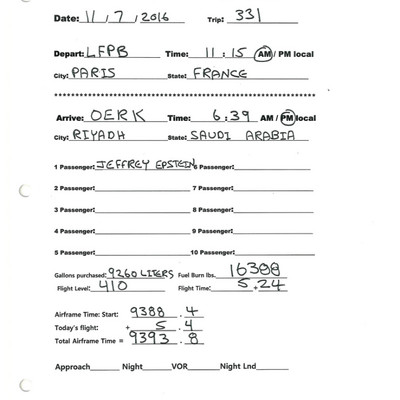 Date: 11/7/2016 Trip: 331
Depart: LFPB Time: 11:15 AM / PM local
City: PARIS State: FRANCE
****************************************************************
Arrive: OERK Time: 6:39 AM / PM local
City: RIYADH State: SAUDI ARABIA
1 Passenger: JEFFREY EPSTEIN 6 Passenger:
2 Passenger: 7 Passenger:
3 Passenger: 8 Passenger:
4 Passenger: 9 Passenger:
5 Passenger: 10 Passenger:
Gallons purchased: 9260 LITERS Fuel Burn lbs. 16388
Flight Level: 410 Flight Time: 5+24
Airframe Time: Start: 9388.4
Today's flight: + 5.4
Total Airframe Time = 9393.8
Approach Night VOR Night Lnd